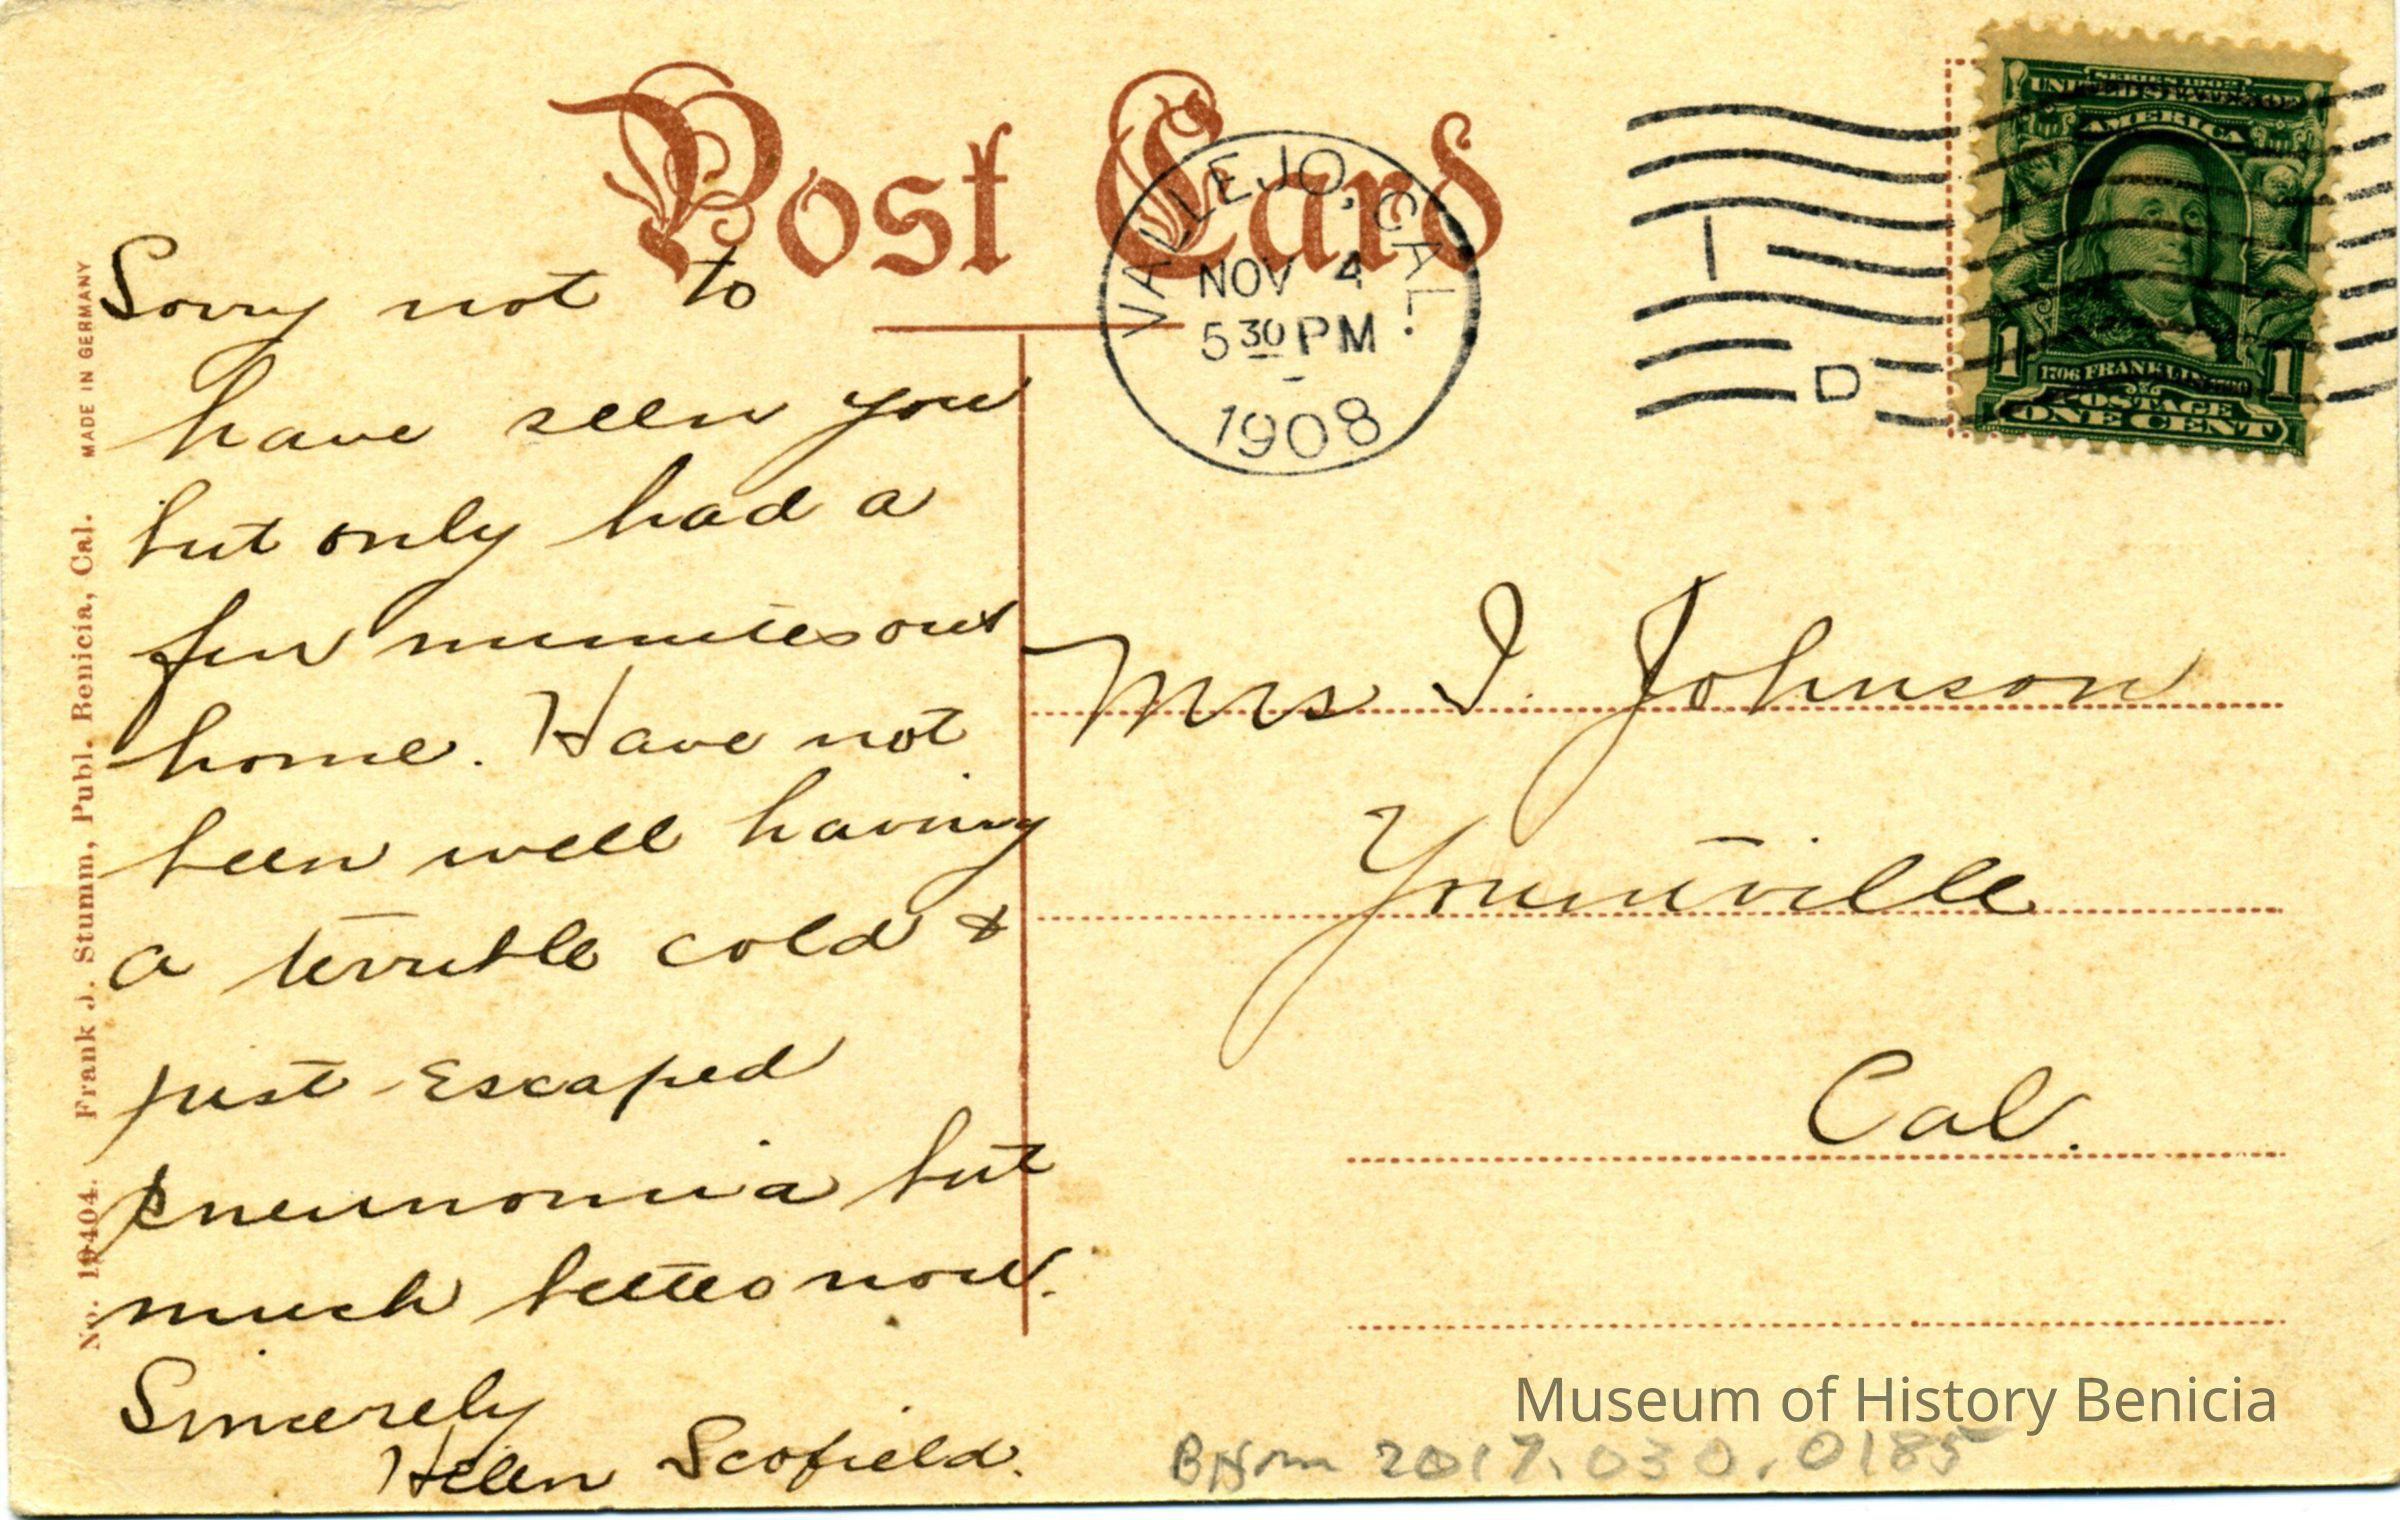 Post Card
VALLEJO, CAL.
NOV 4
5 30 PM
1908
I
D
SERIES 1902
UNITED STATES OF
AMERICA
1706 FRANKLIN 1790
POSTAGE
1 1
ONE CENT
Sorry not to
have seen you
but only had a
few minutes out
home. Have not
been well having
a terrible cold &
just Escaped
pneumonia but
much better now.
Sincerely
Helen Scofield.
Mrs I. Johnson
Yountville
Cal.
No. 19404. Frank J. Stumm, Publ. Benicia, Cal. MADE IN GERMANY
Museum of History Benicia
BHm 2017.030.0185